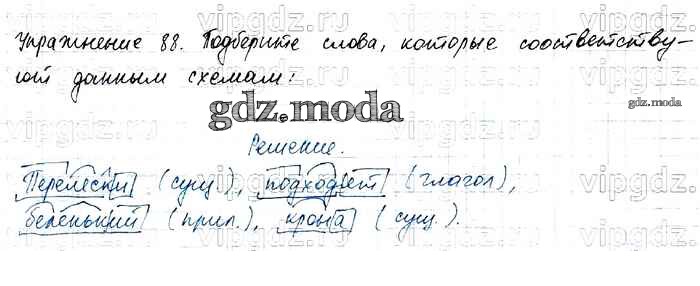 Упражнение 88. Подберите слова, которые соответству-
ют данным схемам:
gdz.moda
gdz.moda
Решение.
Перелески (сущ), подходят (глагол),
беленький (прил.), крона (сущ.).
vipgdz.ru